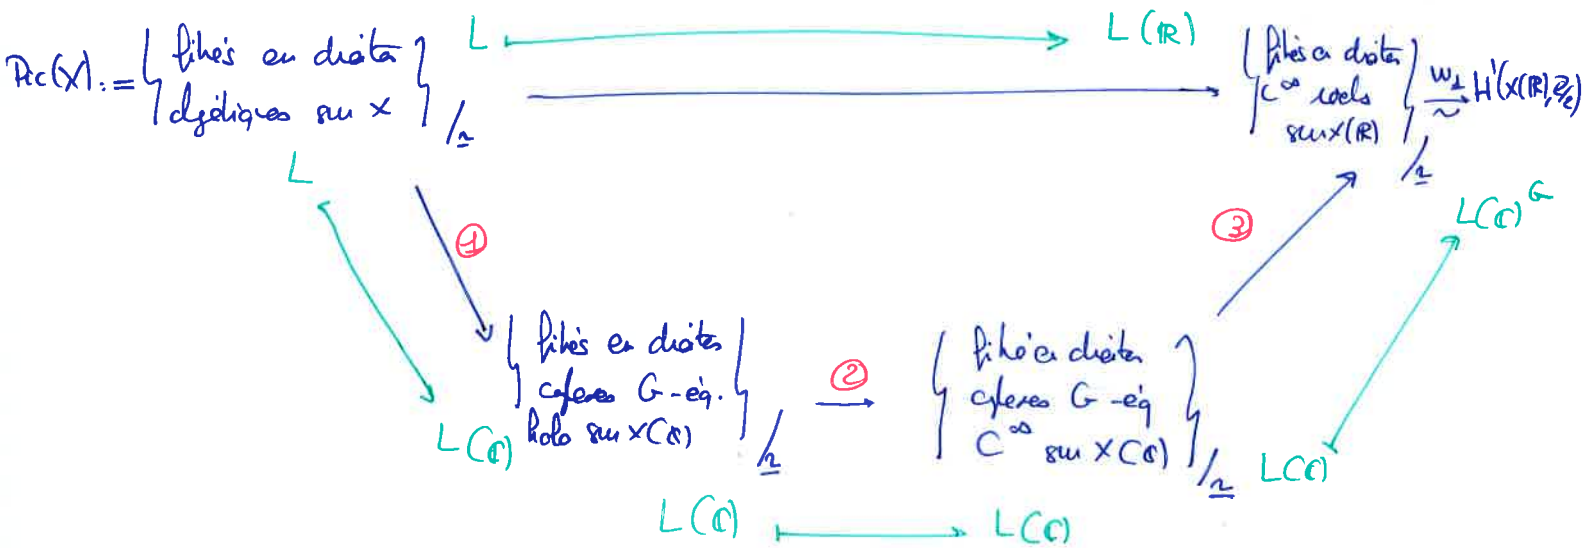 L ⟼ L(ℝ)
Pic(X) := { fibrés en droites algébriques sur X } / ≃
{ fibrés en droites C^∞ réels sur X(ℝ) } / ≃ w_1 ∼ H^1(X(ℝ), ℤ/2)
L
①
③
L(ℂ)^G
{ fibrés en droites complexes G-éq. holo sur X(ℂ) } / ≃
②
{ fibrés en droites complexes G-éq C^∞ sur X(ℂ) } / ≃
L(ℂ)
L(ℂ)
L(ℂ) ⟼ L(ℂ)